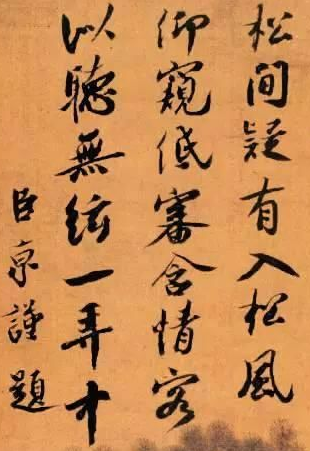 松間疑有入松風
仰窺低審含情客
似聽無絃一弄中
臣京謹題